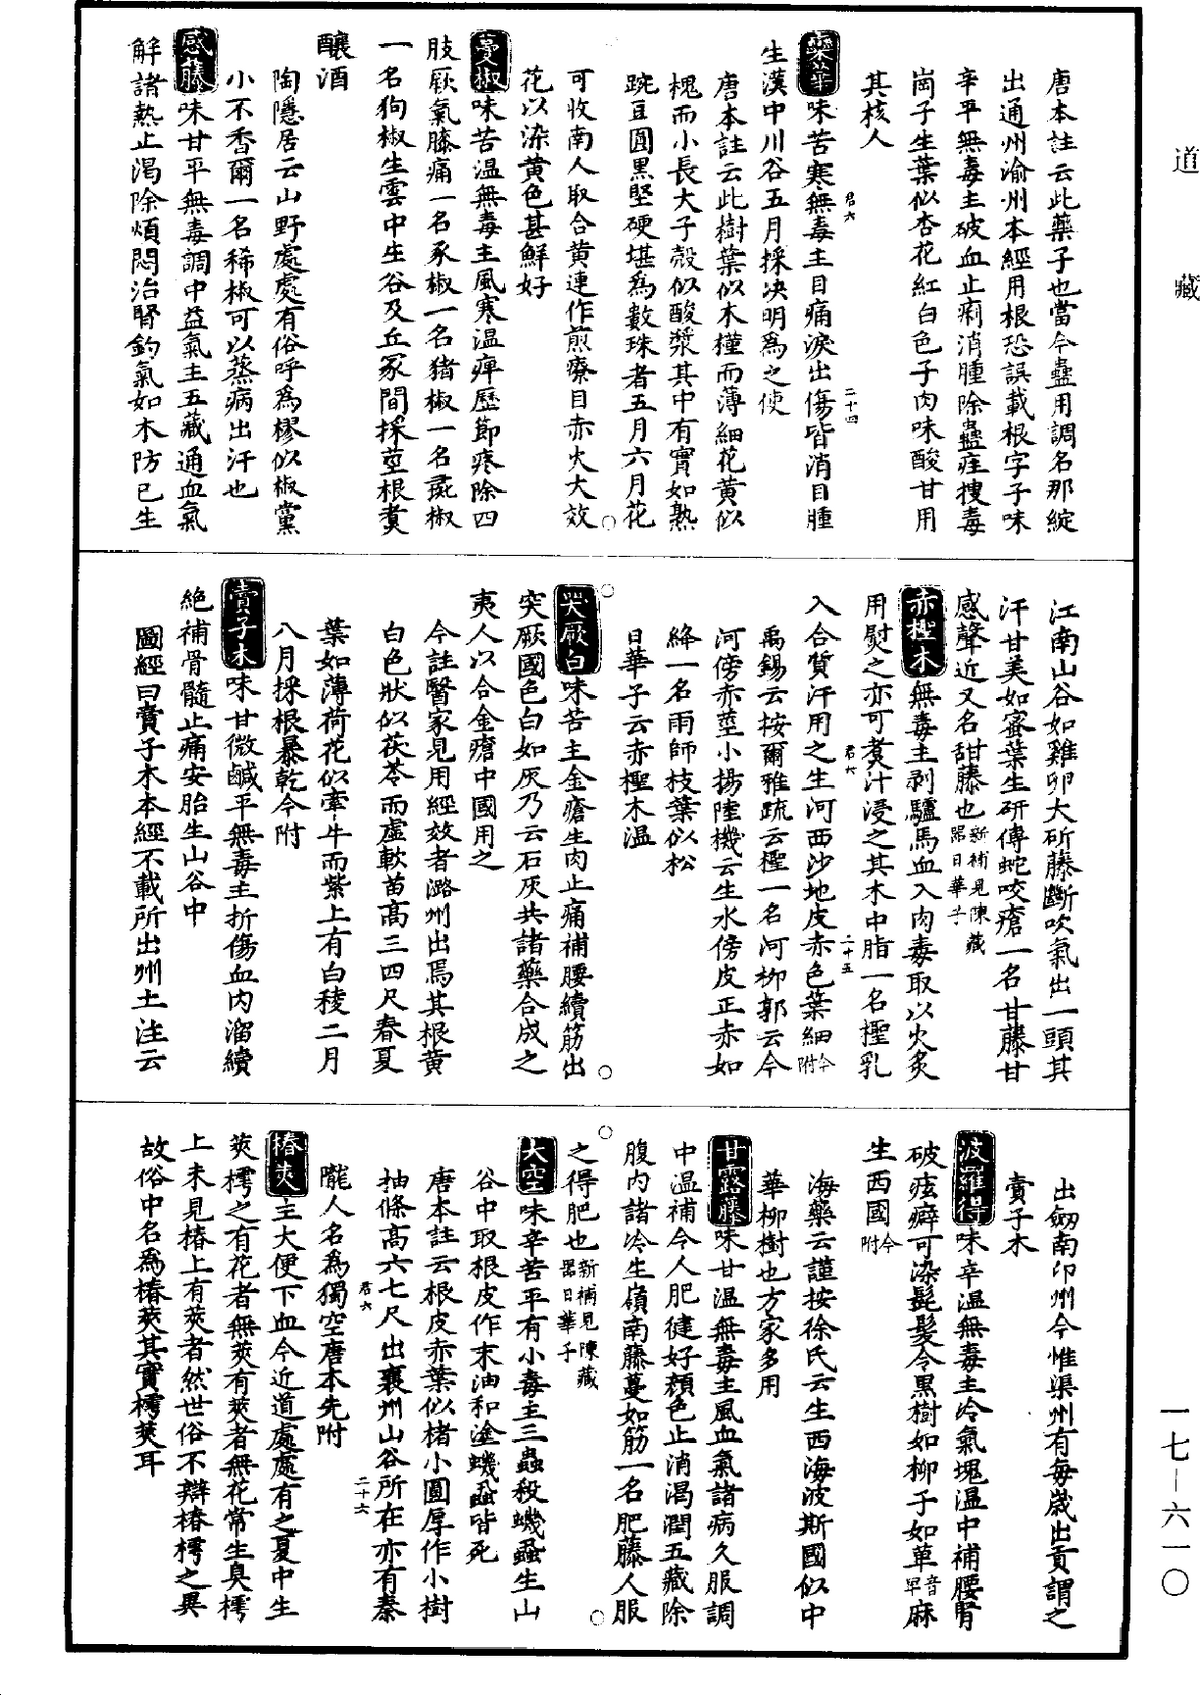 道藏
唐本註云此藥子也當今蠱用調名那綻
出通州渝州本經用根恐誤載根字子味
辛平無毒主破血止痢消腫除蠱疰摟毒
崗子生葉似杏花紅白色子肉味酸甘用
其核人
君六
二十四
欒華味苦寒無毒主目痛淚出傷眥消目腫
生漢中川谷五月採決明為之使
唐本註云此樹葉似木槿而薄細花黃似
槐而小長大子殼似酸漿其中有實如熟
豌豆圓黑堅硬堪為數珠者五月六月花
可收南人取合黃連作煎療目赤火大效
花以染黃色甚鮮好
蔓椒味苦温無毒主風寒濕痺歷節疼除四
肢厥氣膝痛一名豕椒一名猪椒一名彘椒
一名狗椒生雲中生谷及丘冢間採莖根煑
釀酒
陶隱居云山野處處有俗呼為樛似椒黨
小不香爾一名稀椒可以蒸病出汗也
感藤味甘平無毒調中益氣主五藏通血氣
解諸熱止渴除煩悶治腎釣氣如木防已生
江南山谷如雞卵大斫藤斷吹氣出一頭其
汗甘美如蜜葉生研傅蛇咬瘡一名甘藤甘
感聲近又名甜藤也新補見陳藏器日華子
赤檉木無毒主剥驢馬血入肉毒取以火炙
用熨之亦可煑汁浸之其木中脂一名檉乳
君六
二十五
入合質汗用之生河西沙地皮赤色葉細今附
禹錫云按爾雅疏云檉一名河柳郭云今
河傍赤莖小揚陸機云生水傍皮正赤如
絳一名雨師枝葉似松
日華子云赤檉木温
突厥白味苦主金瘡生肉止痛補腰續筋出
突厥國色白如灰乃云石灰共諸藥合成之
夷人以合金瘡中國用之
今註醫家見用經效者潞州出焉其根黃
白色狀似茯苓而虛軟苗高三四尺春夏
葉如薄荷花似牽牛而紫上有白稜二月
八月採根暴乾今附
賣子木味甘微鹹平無毒主折傷血内溜續
絕補骨髓止痛安胎生山谷中
圖經曰賣子木本經不載所出州土注云
出劒南卭州今惟渠州有每歲出貢謂之
賣子木
波羅得味辛温無毒主冷氣塊温中補腰腎
破痃癖可染髭髮令黑樹如柳子如萆音早麻
生西國今附
海藥云謹按徐氏云生西海波斯國似中
華柳樹也方家多用
甘露藤味甘温無毒主風血氣諸病久服調
中温補令人肥健好顔色止消渴潤五藏除
腹内諸冷生嶺南藤蔓如筋一名肥藤人服
之得肥也新補見陳藏器日華子
大空味辛苦平有小毒主三蟲殺蟣蝨生山
谷中取根皮作末油和塗蟣蝨皆死
唐本註云根皮赤葉似楮小圓厚作小樹
抽條高六七尺出襄州山谷所在亦有秦
君六
二十六
隴人名為獨空唐本先附
椿莢主大便下血今近道處處有之夏中生
莢樗之有花者無莢有莢者無花常生臭樗
上未見椿上有莢者然世俗不辯椿樗之異
故俗中名為椿莢其實樗莢耳
一七—六一〇